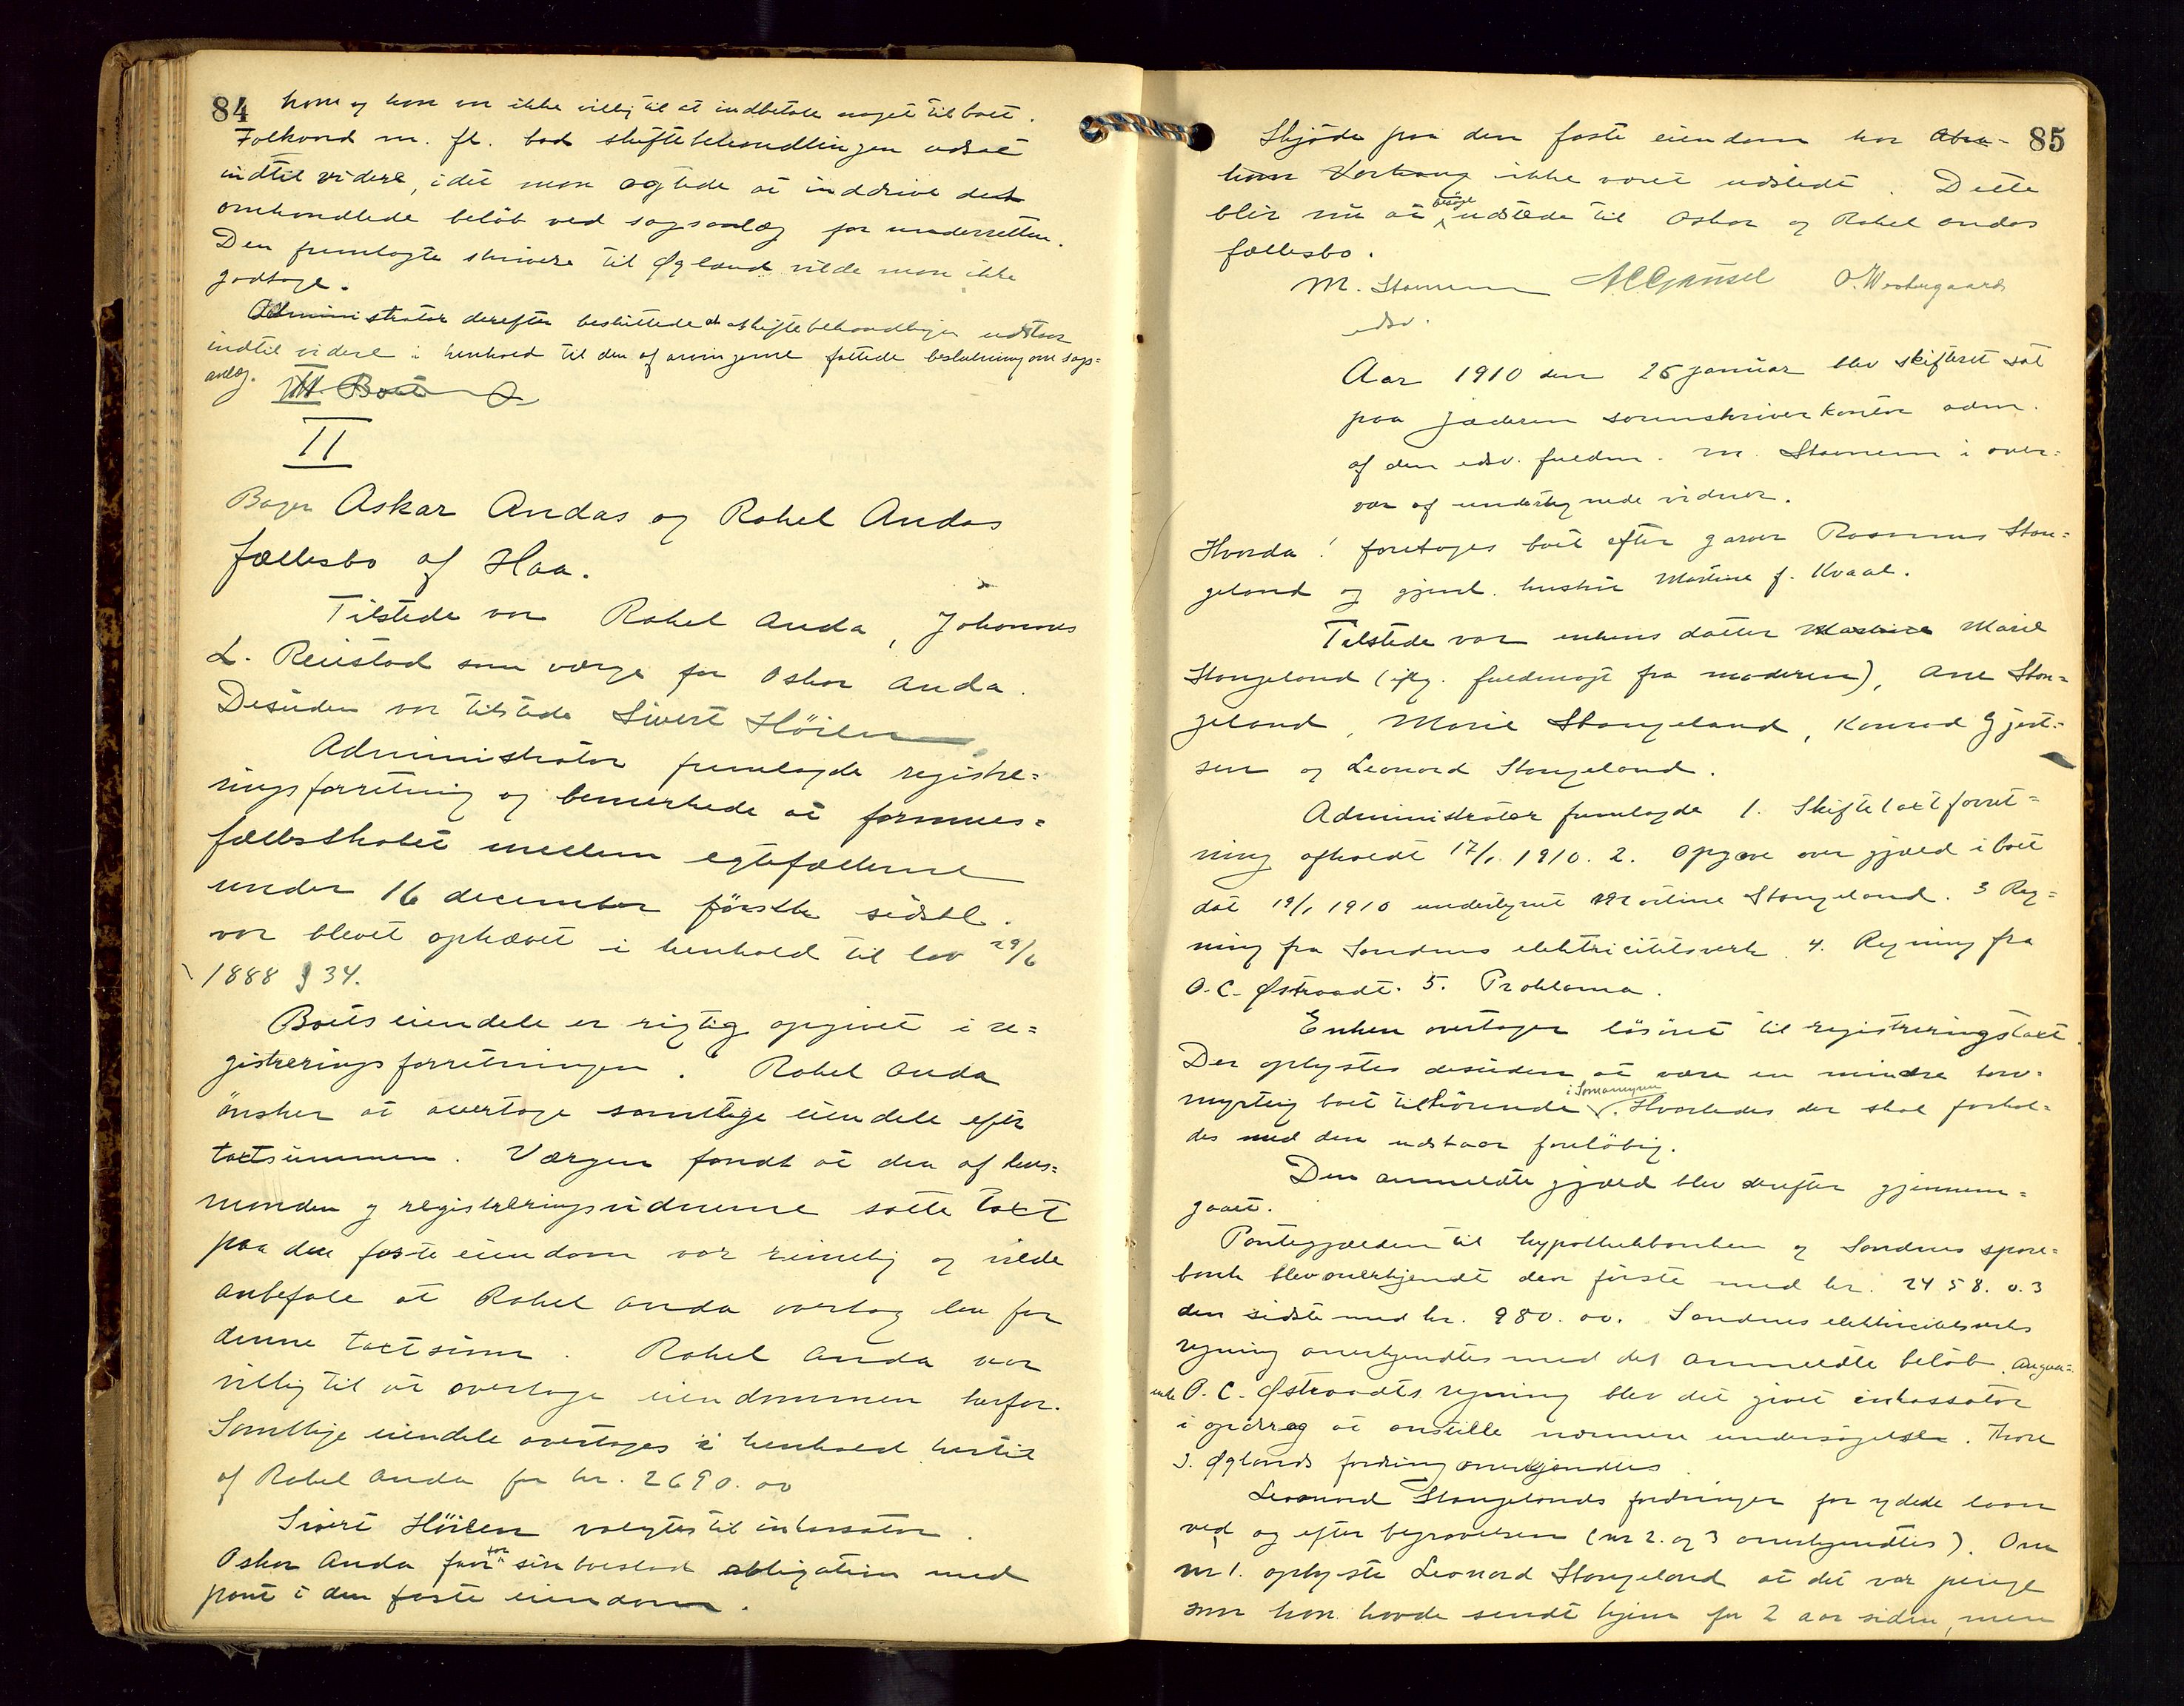 84
ham og han var ikke villig til at indbetale noget til boet.
Folkvord m. fl. bad skiftebehandlingen udsat
indtil videre, idet man agtede at inddrive det
omhandlede beløb ved sagsanlæg for underretten.
Den fremlagte skrivelse til Øgland vilde man ikke
godtage.
Administrator derefter besluttede at skiftebehandlingen udstaar
indtil videre i henhold til den af arvingerne fattede beslutning om sags=
anlæg.
III. Boet
II
Bager Askar Andas og Rakel Andas
fællesbo af Haa.
Tilstede var Rakel Anda, Johannes
L. Reiestad som værge for Oskar Anda.
Desuden var tilstede Sivert Höilen.
Administrator fremlagde registre=
ringsforretning og bemerkede at formues=
fællesskabet mellem egtefællerne
under 16 december förstk. sidstl.
var blevet ophævet i henhold til lov 29/6
1888 § 34.
Boets eiendele er rigtig opgivet i re=
gistreringsforretningen. Rakel Anda
ønsker at overtage samtlige eiendele efter
taxtsummen. Værgen fandt at den af lens=
manden og registreringsvidnerne satte taxt
paa den faste eiendom var rimelig og vilde
anbefale at Rakel Anda overtog den for
denne taxtsum. Rakel Anda var
villig til at overtage eiendommen herfor.
Samtlige eiendele overtages i henhold hertil
af Rakel Anda for kr. 2690.00
Sivert Höilen valgtes til inkassator.
Oskar Anda faar for sin boeslod obligation med
pant i den faste eiendom.
85
Skjøde paa den faste eiendom har Abra=
ham Varhaug ikke været udstedt. Dette
blir nu at besørge udstede til Oskar og Rakel Andas
fællesbo.
M. Stamnem A C Gjansel O. Westergaard
edsv.
Aar 1910 den 25 januar blev skifteret sat
paa Jæderen sorenskriverkontor adm.
af den edsv. fuldm. M. Stamnem i over=
vær af undertegnede vidner.
Hvorda! foretages boet efter garver Rasmus Stan=
geland og gjenl. hustru Martine f. Kvaal.
Tilstede var enkens datter Martine Marie
Stangeland (iflg. fuldmagt fra moderen), Ane Stan=
geland, Marie Stangeland, Konrad Gjert=
sen og Leonard Stangeland.
Administrator fremlagde 1. Skiftetaxtforret=
ning afholdt 17/1 1910. 2. Opgave over gjæld i boet
dat 19/1 1910 undertegnet Martine Stangeland. 3 Reg=
ning fra Sandnes elektricitetsverk 4. Regning fra
O. C. Østraadt. 5. Proklama.
Enken overtager løsøret til registreringstaxt.
Der oplystes desuden at være en mindre torv=
myrteig boet tilhørende i Somamyren. Hvorledes der skal forhol=
des med den udstaar foreløbig.
Den anmeldte gjæld blev derefter gjennem=
gaaet.
Pantegjælden til hypothekbanken og Sandnes spare=
bank blev anerkjendt den første med kr. 2458.03
den sidste med kr. 980.00. Sandnes elektricitetsverks
regning anerkjendtes med det anmeldte beløb. Angaa=
ende O. C. Østraadts regning blev det givet inkassator
i opdrag at anstille nærmere undersøgelse. Thore
S. Øglands fordring anerkjendtes.
Leonard Stangelands fordringer for ydede laan
ved og efter begravelsen (nr 2. og 3 anerkjendtes). Om
nr 1. oplyste Leonard Stangeland at det var penge
som han havde sendt hjem for 2 aar siden, men